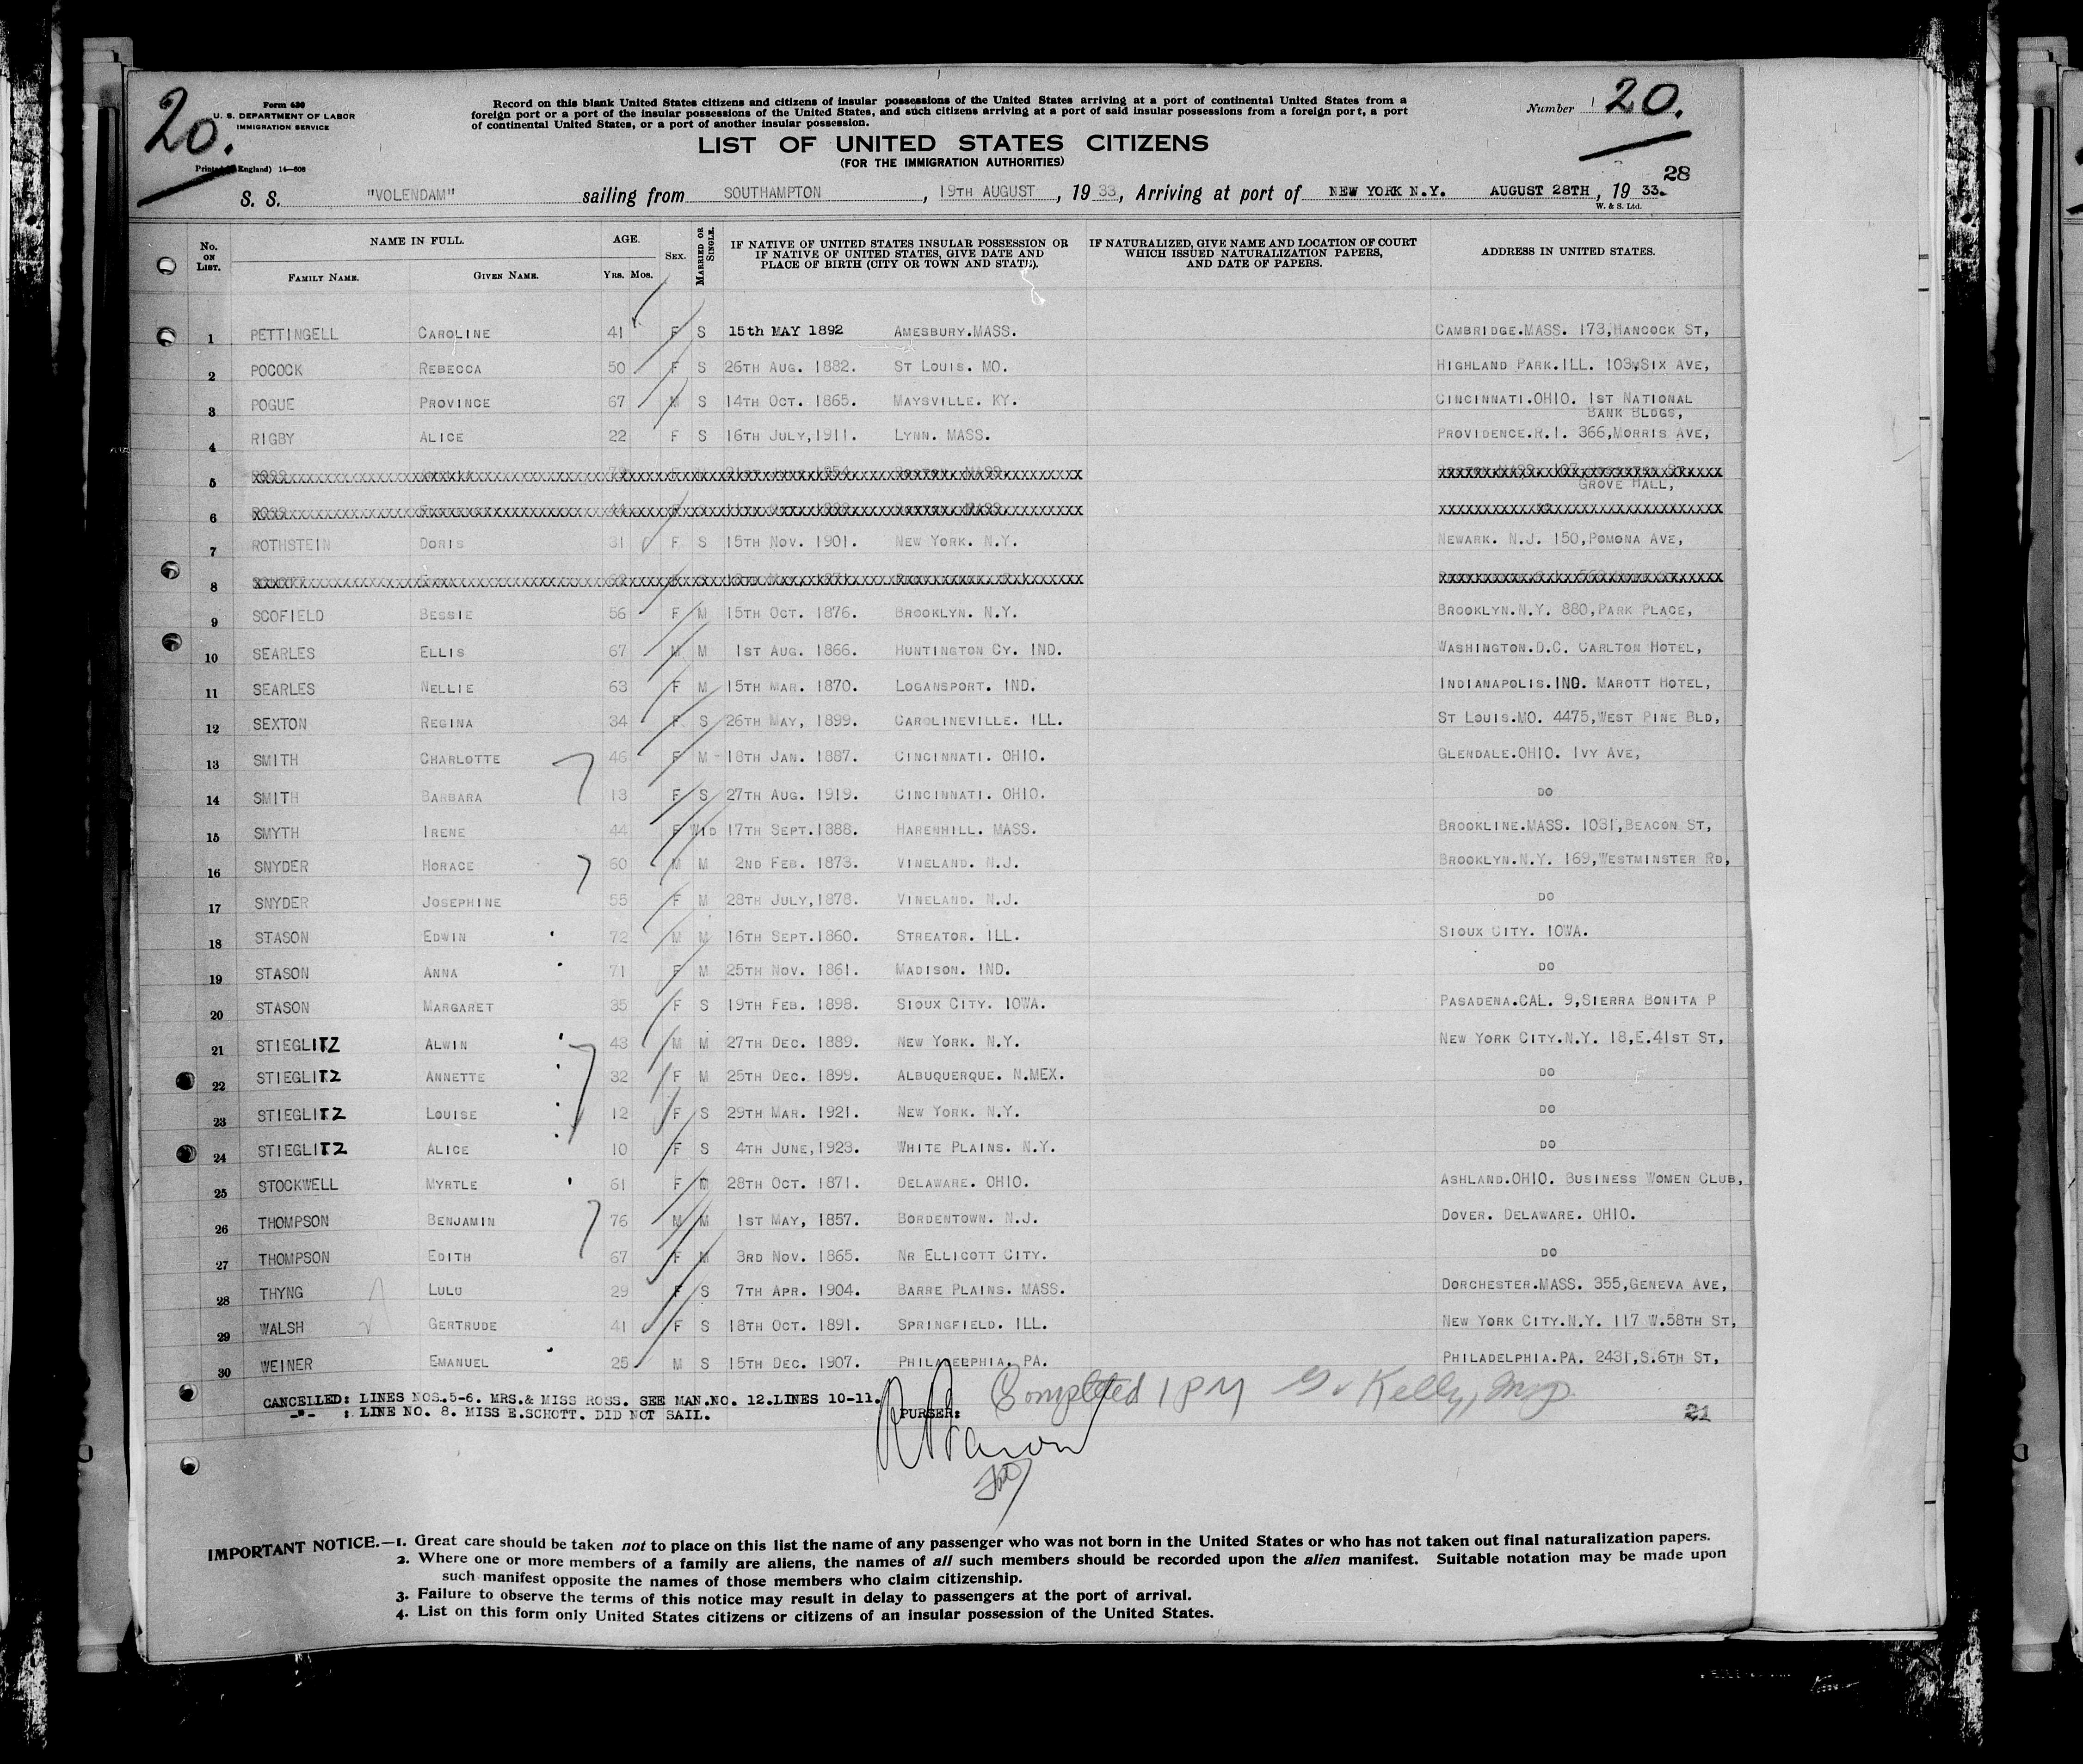 20.
Form 630
U. S. DEPARTMENT OF LABOR
IMMIGRATION SERVICE
England) 14—608
Record on this blank United States citizens and citizens of insular possessions of the United States arriving at a port of continental United States from a
foreign port or a port of the insular possessions of the United States, and such citizens arriving at a port of said insular possessions from a foreign port, a port
of continental United States, or a port of another insular possession.
Number 20.
LIST OF UNITED STATES CITIZENS
(FOR THE IMMIGRATION AUTHORITIES)
28
S. S. "VOLENDAM" sailing from SOUTHAMPTON, 19TH AUGUST, 1933, Arriving at port of NEW YORK N.Y. AUGUST 28TH, 1933.
W. & S. Ltd.
No. ON LIST. NAME IN FULL. FAMILY NAME. GIVEN NAME. AGE. YRS. MOS. SEX. MARRIED OR SINGLE. IF NATIVE OF UNITED STATES INSULAR POSSESSION OR IF NATIVE OF UNITED STATES, GIVE DATE AND PLACE OF BIRTH (CITY OR TOWN AND STATE). IF NATURALIZED, GIVE NAME AND LOCATION OF COURT WHICH ISSUED NATURALIZATION PAPERS, AND DATE OF PAPERS. ADDRESS IN UNITED STATES.
1 PETTINGELL CAROLINE 41 F S 15th MAY 1892 AMESBURY.MASS. CAMBRIDGE.MASS. 173,HANCOCK ST,
2 POCOCK REBECCA 50 F S 26TH AUG. 1882. ST LOUIS. MO. HIGHLAND PARK.ILL. 103,SIX AVE,
3 POGUE PROVINCE 67 M S 14TH OCT. 1865. MAYSVILLE. KY. CINCINNATI.OHIO. 1ST NATIONAL
BANK BLDGS,
4 RIGBY ALICE 22 F S 16TH JULY,1911. LYNN. MASS. PROVIDENCE.R.I. 366,MORRIS AVE,
5 ROSS
GROVE HALL,
6 ROSS
7 ROTHSTEIN DORIS 31 F S 15TH NOV. 1901. NEW YORK. N.Y. NEWARK. N.J. 150,POMONA AVE,
8
9 SCOFIELD BESSIE 56 F M 15TH OCT. 1876. BROOKLYN. N.Y. BROOKLYN.N.Y. 880,PARK PLACE,
10 SEARLES ELLIS 67 M M 1ST AUG. 1866. HUNTINGTON CY. IND. WASHINGTON.D.C. CARLTON HOTEL,
11 SEARLES NELLIE 63 F M 15TH MAR. 1870. LOGANSPORT. IND. INDIANAPOLIS.IND. MAROTT HOTEL,
12 SEXTON REGINA 34 F S 26TH MAY, 1899. CAROLINEVILLE. ILL. ST LOUIS.MO. 4475,WEST PINE BLD,
13 SMITH CHARLOTTE 46 F M 18TH JAN. 1887. CINCINNATI. OHIO. GLENDALE.OHIO. IVY AVE,
14 SMITH BARBARA 13 F S 27TH AUG. 1919. CINCINNATI. OHIO. DO
15 SMYTH IRENE 44 F WID 17TH SEPT.1888. HARENHILL. MASS. BROOKLINE.MASS. 1031,BEACON ST,
16 SNYDER HORACE 60 M M 2ND FEB. 1873. VINELAND. N.J. BROOKLYN.N.Y. 169,WESTMINSTER RD,
17 SNYDER JOSEPHINE 55 F M 28TH JULY,1878. VINELAND. N.J. DO
18 STASON EDWIN 72 M M 16TH SEPT.1860. STREATOR. ILL. SIOUX CITY. IOWA.
19 STASON ANNA 71 F M 25TH NOV. 1861. MADISON. IND. DO
20 STASON MARGARET 35 F S 19TH FEB. 1898. SIOUX CITY. IOWA. PASADENA.CAL. 9,SIERRA BONITA P
21 STIEGLITZ ALWIN 43 M M 27TH DEC. 1889. NEW YORK. N.Y. NEW YORK CITY.N.Y. 18,E.41ST ST,
22 STIEGLITZ ANNETTE 32 F M 25TH DEC. 1899. ALBUQUERQUE. N.MEX. DO
23 STIEGLITZ LOUISE 12 F S 29TH MAR. 1921. NEW YORK. N.Y. DO
24 STIEGLITZ ALICE 10 F S 4TH JUNE,1923. WHITE PLAINS. N.Y. DO
25 STOCKWELL MYRTLE 61 F M 28TH OCT. 1871. DELAWARE. OHIO. ASHLAND.OHIO. BUSINESS WOMEN CLUB,
26 THOMPSON BENJAMIN 76 M M 1ST MAY, 1857. BORDENTOWN. N.J. DOVER. DELAWARE. OHIO.
27 THOMPSON EDITH 67 F M 3RD NOV. 1865. NR ELLICOTT CITY. DO
28 THYNG LULU 29 F S 7TH APR. 1904. BARRE PLAINS. MASS. DORCHESTER.MASS. 355,GENEVA AVE,
29 WALSH GERTRUDE 41 F S 18TH OCT. 1891. SPRINGFIELD. ILL. NEW YORK CITY.N.Y. 117 W.58TH ST,
30 WEINER EMANUEL 25 M S 15TH DEC. 1907. PHILADELPHIA. PA. PHILADELPHIA.PA. 2431,S.6TH ST,
CANCELLED: LINES NOS.5-6. MRS.& MISS ROSS. SEE MAN.NO. 12.LINES 10-11.
-"- : LINE NO. 8. MISS E.SCHOTT. DID NOT SAIL.
PURSER:
Completed 1 PM Kelly, Insp.
21
IMPORTANT NOTICE.—1. Great care should be taken not to place on this list the name of any passenger who was not born in the United States or who has not taken out final naturalization papers.
2. Where one or more members of a family are aliens, the names of all such members should be recorded upon the alien manifest. Suitable notation may be made upon
such manifest opposite the names of those members who claim citizenship.
3. Failure to observe the terms of this notice may result in delay to passengers at the port of arrival.
4. List on this form only United States citizens or citizens of an insular possession of the United States.